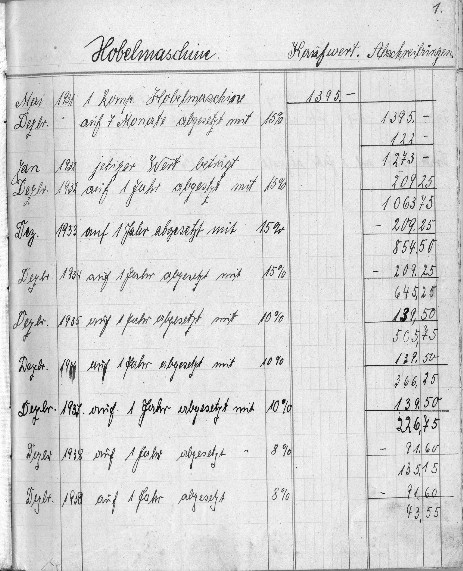 1.
Hobelmaschine. Kaufwert. Abschreibungen.
Mai 1931 1 komp. Hobelmaschine 1395.-
Dezbr. auf 7 Monate abgesetzt mit 15% 1395.-
122 -
Jan 1932 jetziger Wert beträgt 1273 -
Dezbr. 1932 auf 1 Jahr abgesetzt mit 15% 209.25
1063 75
Dez. 1933 auf 1 Jahr abgesetzt mit 15% - 209.25
854.50
Dezbr 1934 auf 1 Jahr abgesetzt mit 15% - 209.25
645,25
Dezbr. 1935 auf 1 Jahr abgesetzt mit 10% 139,50
505,75
Dezbr. auf 1 Jahr abgesetzt mit 10% 139.50
366,25
Dezbr. 1937. auf 1 Jahr abgesetzt mit 10% 139.50
226,75
Dezbr 1938 auf 1 Jahr abgesetzt " 8% - 91.60
135,15
Dezbr. auf 1 Jahr abgesetzt 8% - 91,60
43,55